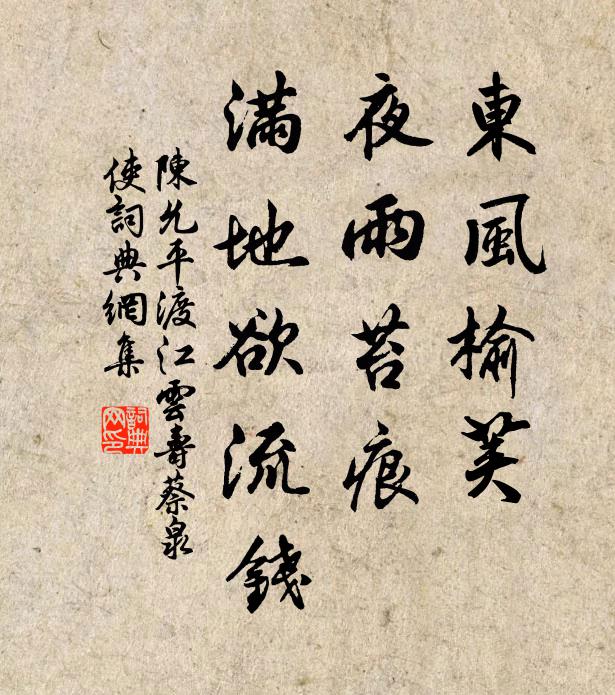 東風榆莢
夜雨苔痕
滿地欲流錢
陳允平渡江雲壽蔡泉
使詞典網集
詞典網印